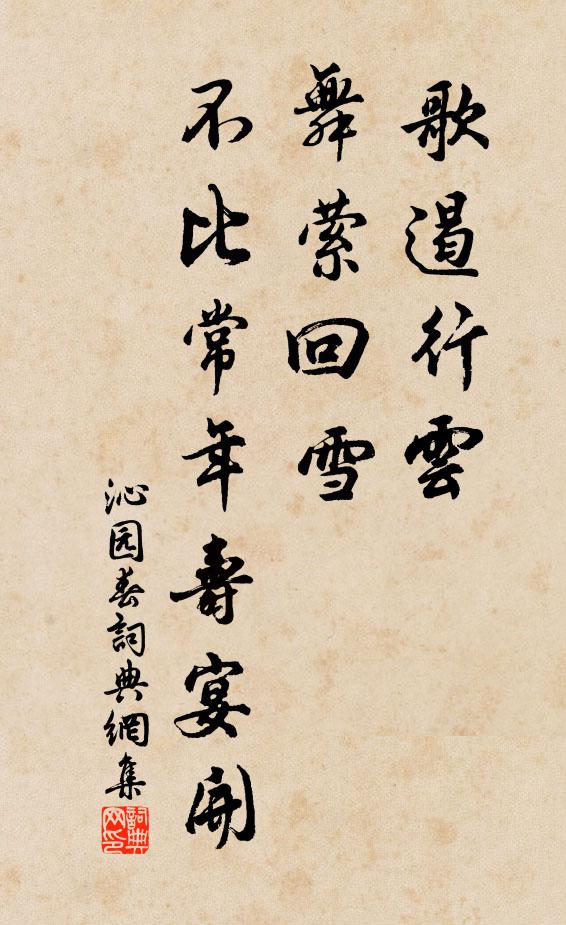 歌遏行雲
舞萦回雪
不比常年壽宴開
沁园春詞典網集
詞典网印